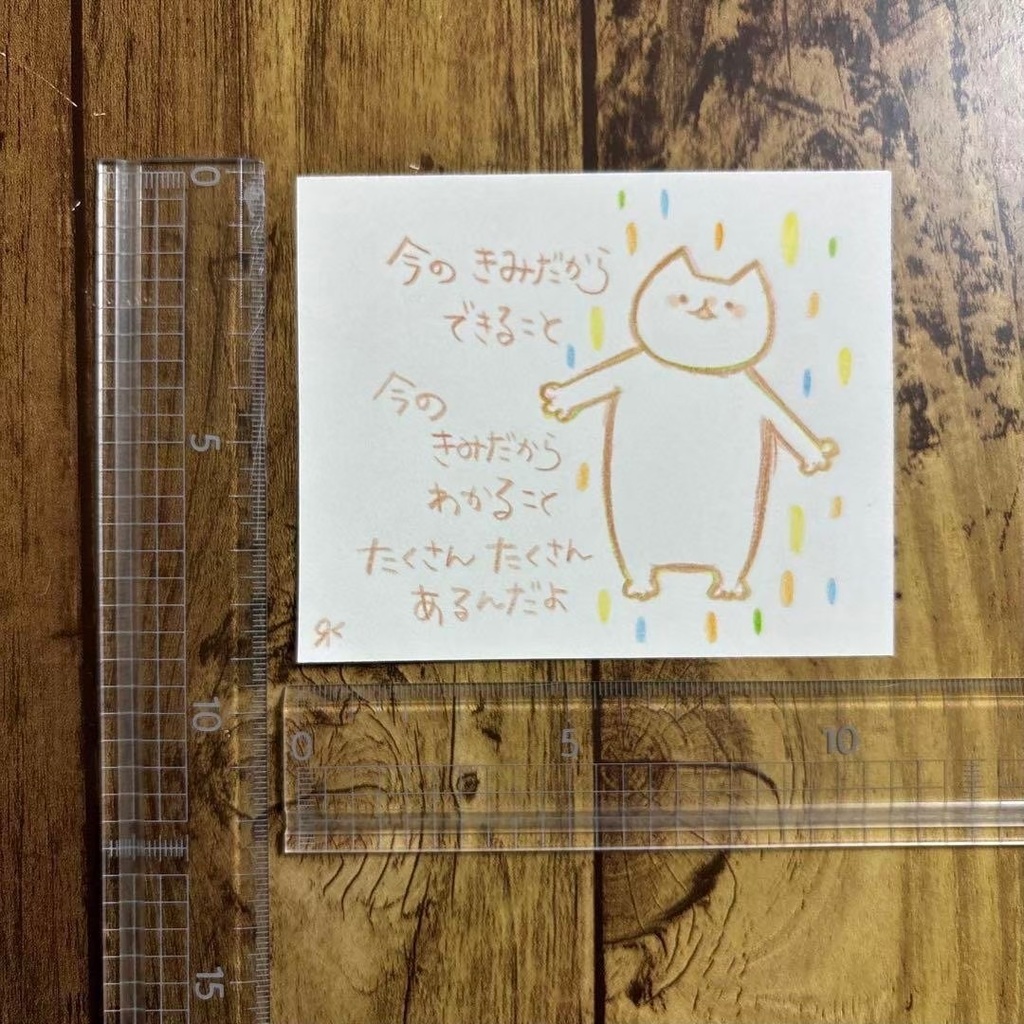 今の きみだから
できること
今の
きみだから
わかること
たくさん たくさん
あるんだよ
0
5
10
15
0
5
10